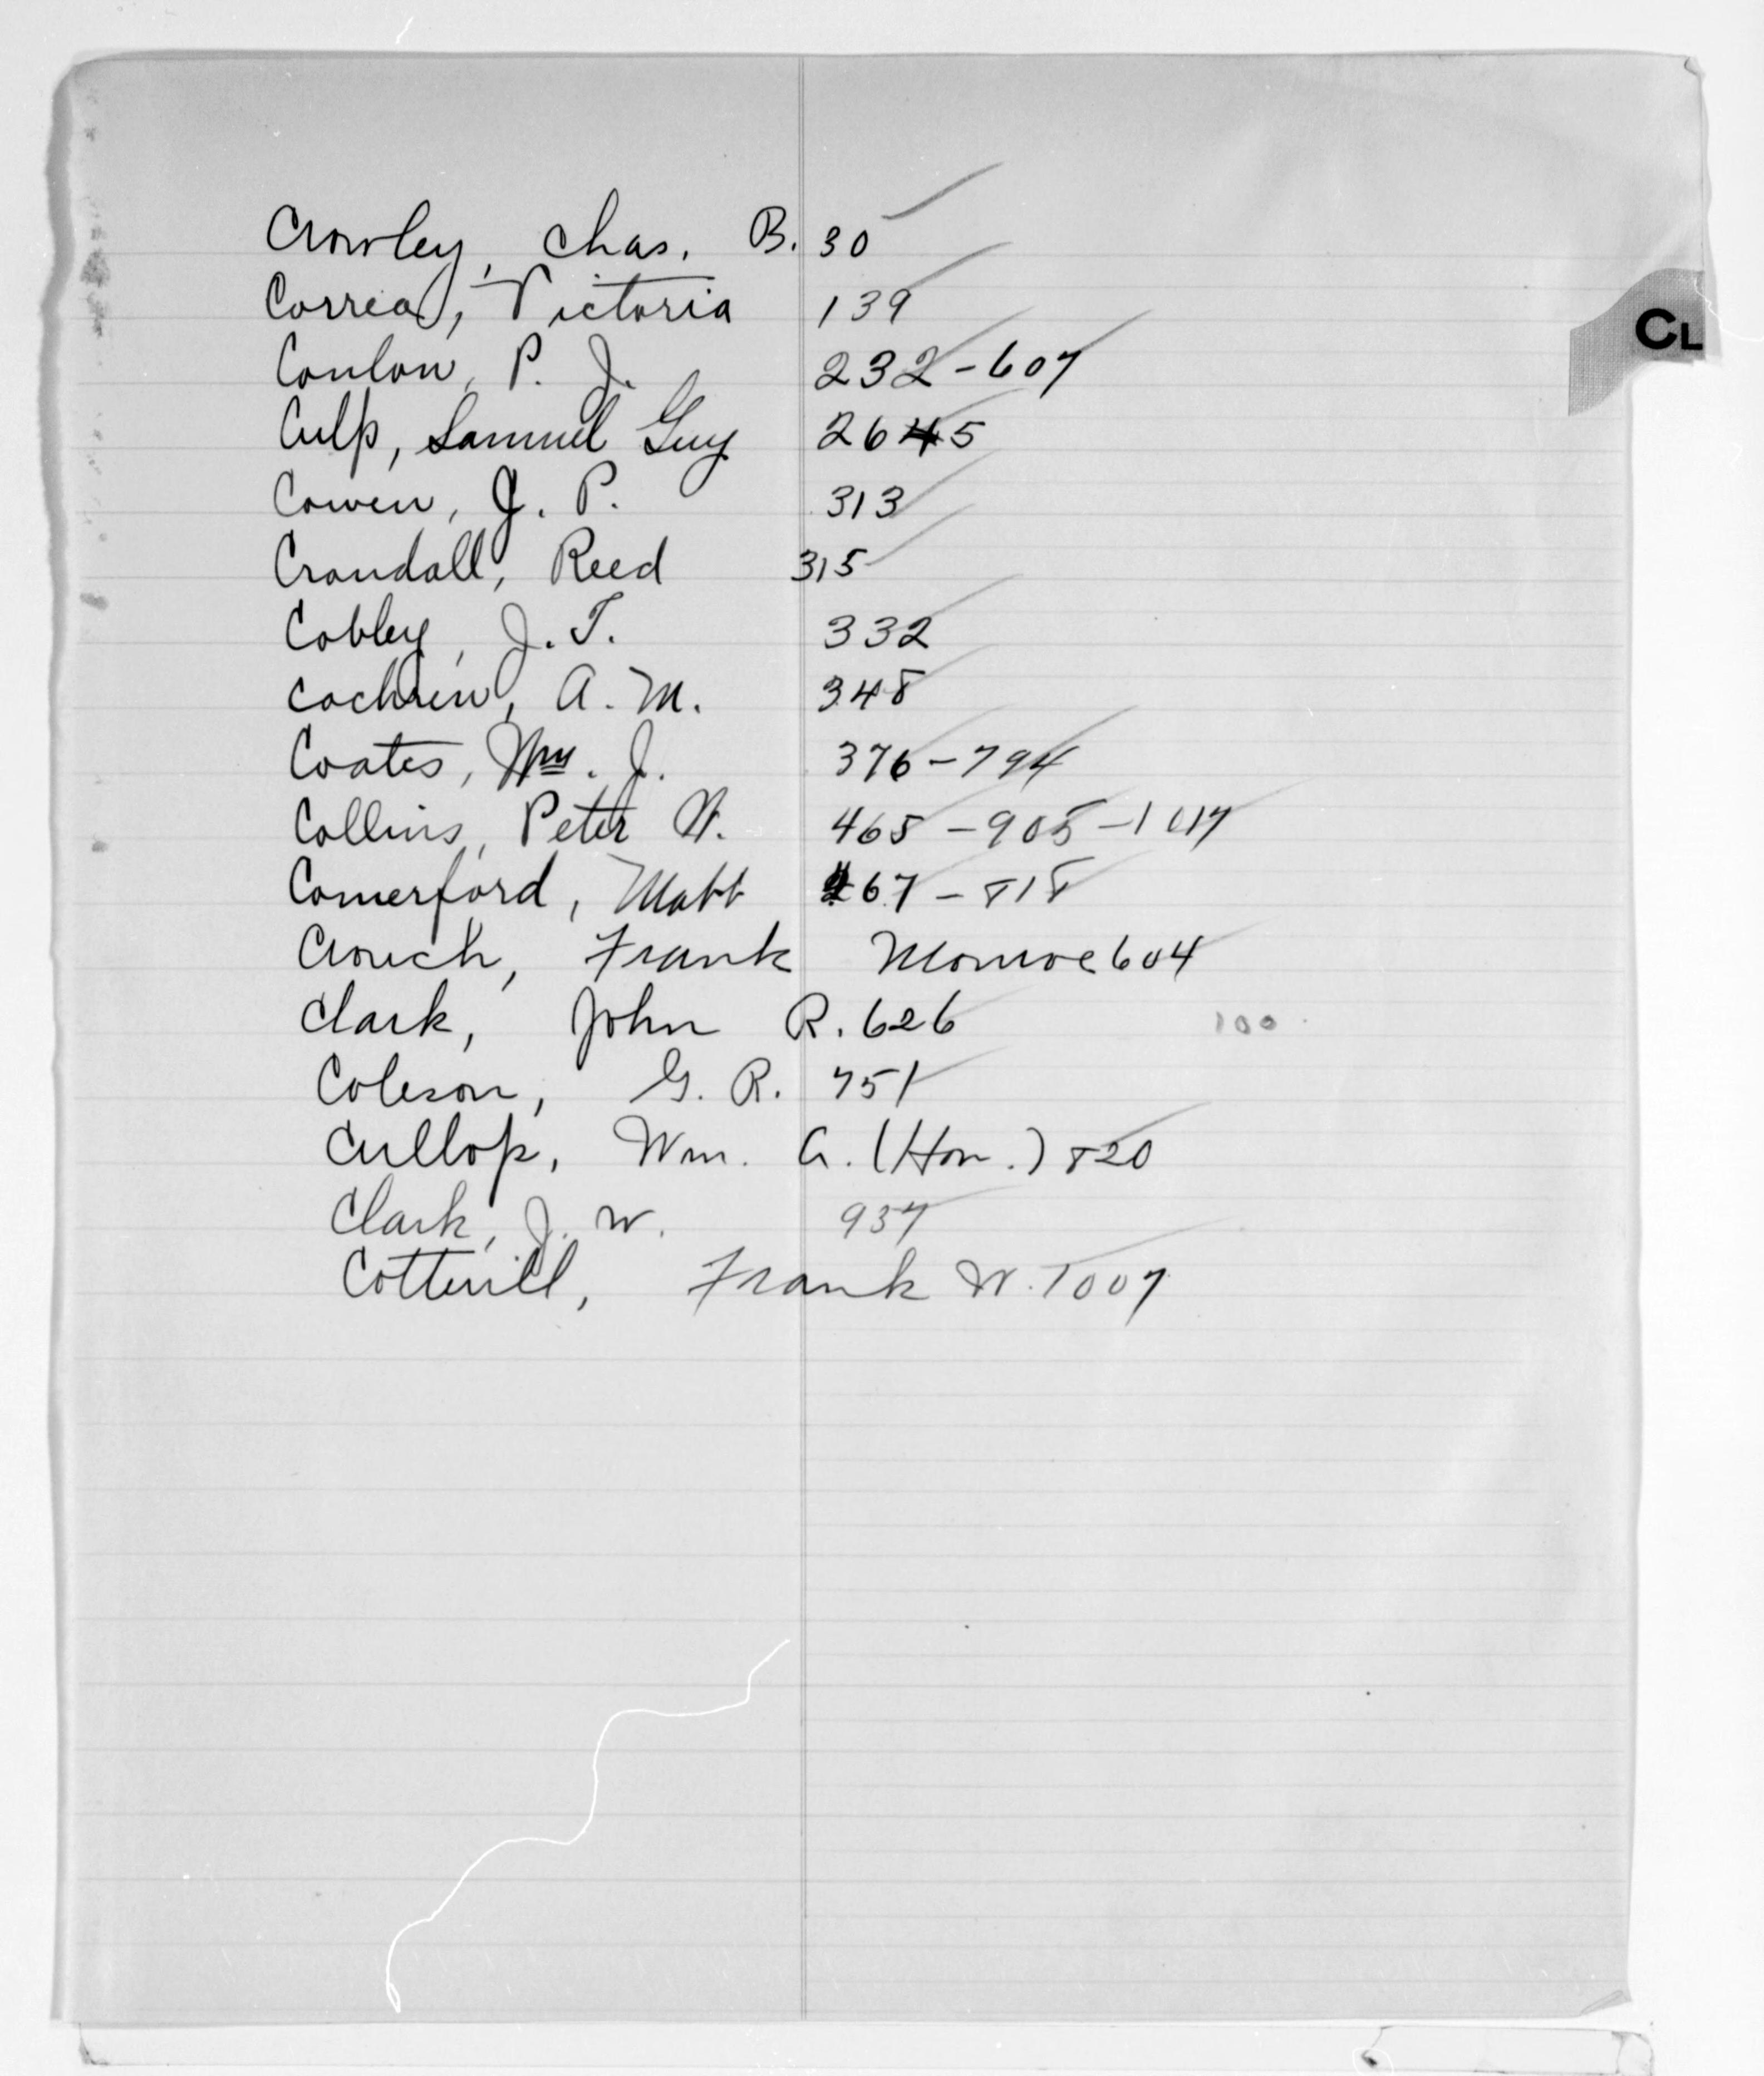 Crowley, Chas. B. 30
Correa, Victoria 139
CL
Conlon, P. J. 232-607
Culp, Samuel Guy 265
Cowen, J. P. 313
Crandall, Reed 315
Cobley, J. T. 332
Cochren, A. M. 348
Coates, Wm. J. 376-794
Collins, Peter W. 465-905-1017
Comerford, Matt 467-818
Crouch, Frank Monroe 604
Clark, John R. 626 100
Coleson, G. R. 751
Cullop, Wm. A. (Hon.) 820
Clark, J. W. 937
Cotterill, Frank W. 1007